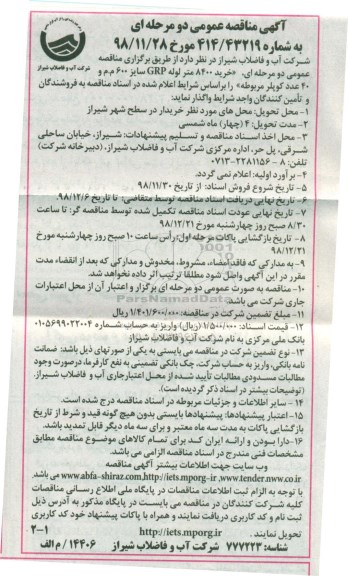 آگهی مناقصه عمومی دو مرحله ای
به شماره ۴۱۴/۴۳۲۱۹ مورخ ۹۸/۱۱/۲۸
شرکت آب و فاضلاب شیراز در نظر دارد از طریق برگزاری مناقصه
عمومی دو مرحله ای، «خرید ۸۴۰۰ متر لوله GRP سایز ۶۰۰ م.م و
۴۰ عدد کوپلر مربوطه» را براساس شرایط اعلام شده در اسناد مناقصه به فروشندگان
و تأمین کنندگان واجد شرایط واگذار نماید:
شرکت آب و فاضلاب شیراز
۱- محل تحویل: محل های مورد نظر خریدار در سطح شهر شیراز
۲- مدت تحویل: ۴ (چهار) ماه شمسی
۳- محل اخذ اسناد مناقصه و تسلیم پیشنهادات: شیراز، خیابان ساحلی
شرقی، پل حر، اداره مرکزی شرکت آب و فاضلاب شیراز، (دبیرخانه شرکت)
تلفن: ۸ - ۰۷۱۳-۲۲۸۱۱۵۶
۴- برآورد اولیه: اعلام نمی گردد.
۵- تاریخ شروع فروش اسناد: از تاریخ ۹۸/۱۱/۳۰
۶- تاریخ نهایی دریافت اسناد مناقصه توسط متقاضی: تا تاریخ ۹۸/۱۲/۶
۷- تاریخ نهایی عودت اسناد مناقصه تکمیل شده توسط مناقصه گر: تا ساعت
۸/۳۰ صبح روز چهارشنبه مورخ ۹۸/۱۲/۲۱
۸- تاریخ بازگشایی پاکات مرحله اول: رأس ساعت ۱۰ صبح روز چهارشنبه مورخ
۹۸/۱۲/۲۱
۹- به مدارکی که فاقد امضاء، مشروط، مخدوش و مدارکی که بعد از انقضاء مدت
مقرر در این آگهی واصل شود مطلقا ترتیب اثر داده نخواهد شد.
۱۰- مناقصه به صورت عمومی دو مرحله ای برگزار و اعتبار آن از محل اعتبارات
جاری شرکت می باشد.
۱۱- مبلغ تضمین شرکت در مناقصه: ۱/۴۰۱/۶۰۰/۰۰۰ ریال
۱۲- قیمت اسناد: ۱/۵۰۰/۰۰۰ (ریال) واریز به حساب شماره ۰۱۰۵۶۹۹۰۲۲۰۰۴
بانک ملی مرکزی به نام شرکت آب و فاضلاب شیراز
۱۳- نوع تضمین شرکت در مناقصه می بایستی به یکی از صورتهای ذیل باشد: ضمانت
نامه بانکی، واریز به حساب شرکت، چک بانکی تضمینی به نفع کارفرما، درصورت وجود
مطالبات مسدودی مطالبات تأیید شده از محل اعتبار جاری آب و فاضلاب شیراز.
(توضیحات بیشتر در اسناد ذکر گردیده است).
۱۴- سایر اطلاعات و جزئیات مربوطه در اسناد مناقصه درج شده است.
۱۵- اعتبار پیشنهادها: پیشنهادها بایستی بدون هیچ گونه قید و شرط از تاریخ
بازگشایی پاکات به مدت سه ماه معتبر و برای سه ماه دیگر قابل تمدید باشد.
۱۶- دارا بودن و ارائه ایران کد برای تمام کالاهای موضوع مناقصه مطابق
مشخصات فنی مندرج در اسناد مناقصه الزامی می باشد.
وب سایت جهت اطلاعات بیشتر آگهی مناقصه
www.abfa-shiraz.com,http://iets.mporg-ir ,www.tender.nww.co.ir می باشد.
با توجه به الزام ثبت اطلاعات مناقصات در پایگاه ملی اطلاع رسانی مناقصات
کلیه شرکت کنندگان در مناقصه می بایست در پایگاه مذکور به آدرس ذیل
ثبت نام و کد کاربری دریافت نمایند و همراه با پاکات پیشنهاد خود کد کاربری
تحویل نمایند. http://iets.mporg.ir ۲-۱
شناسه: ۷۷۷۲۲۳ شرکت آب و فاضلاب شیراز ۱۴۴۰۶/م الف
ParsNamadData